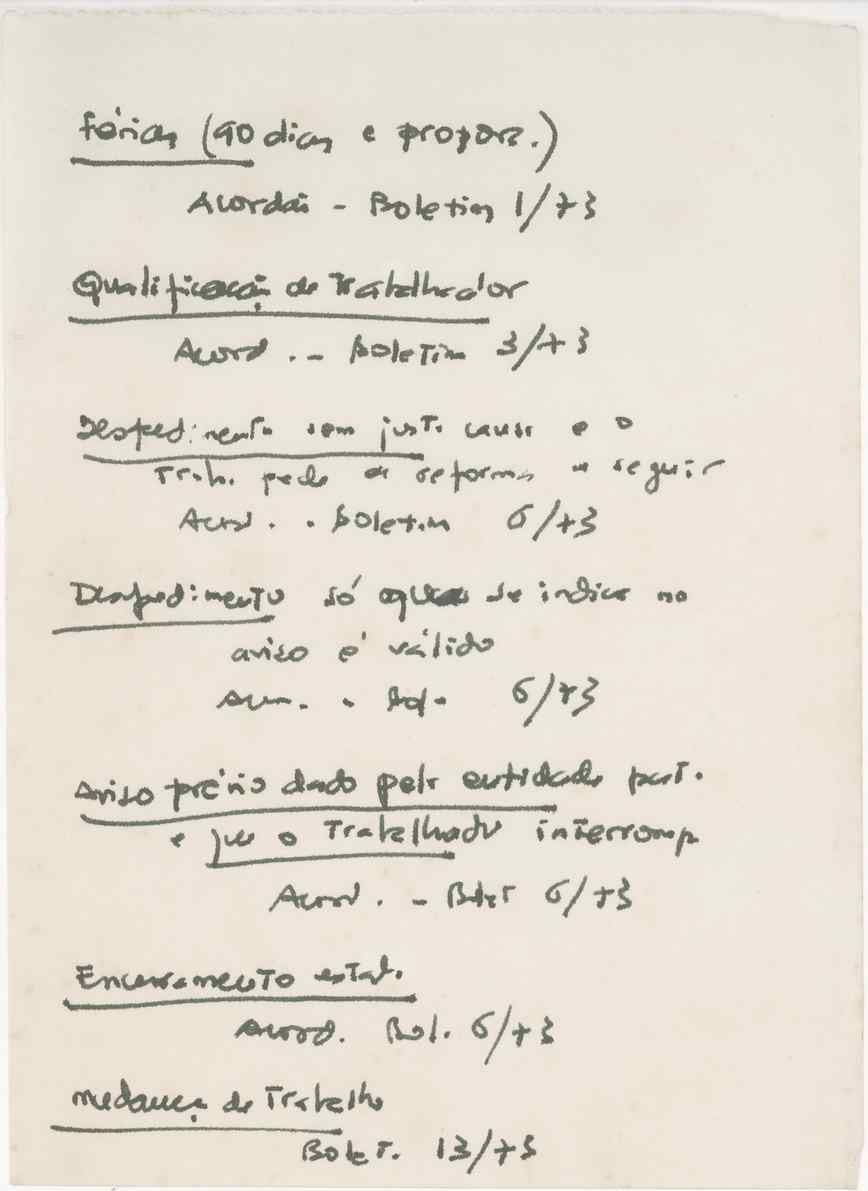 férias (90 dias e propor.)
Acordão - Boletim 1/73
Qualificação de Trabalhador
Acord. - Boletim 3/73
Despedimento sem justa causa e o
Trab. pede a reforma a seguir
Acord. - Boletim 6/73
Despedimento só o que se indica no
aviso é válido
Acor. - Bol. 6/73
Aviso prévio dado pela entidade pat.
e que o Trabalhador interromp
Acord. - Bolet 6/73
Encerramento estab.
Acord. Bol. 6/73
mudança de Trabalho
Bolet. 13/73